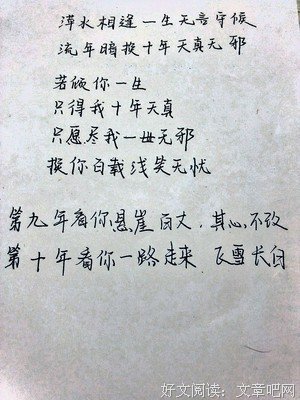 萍水相逢一生无言守候
流年暗换十年天真无邪
若顾你一生
只得我十年天真
只愿尽我一世无邪
换你百载浅笑无忧
第九年看你悬崖百丈，其心不改
第十年看你一路走来 瓦雪长白
好文阅读：文章吧网